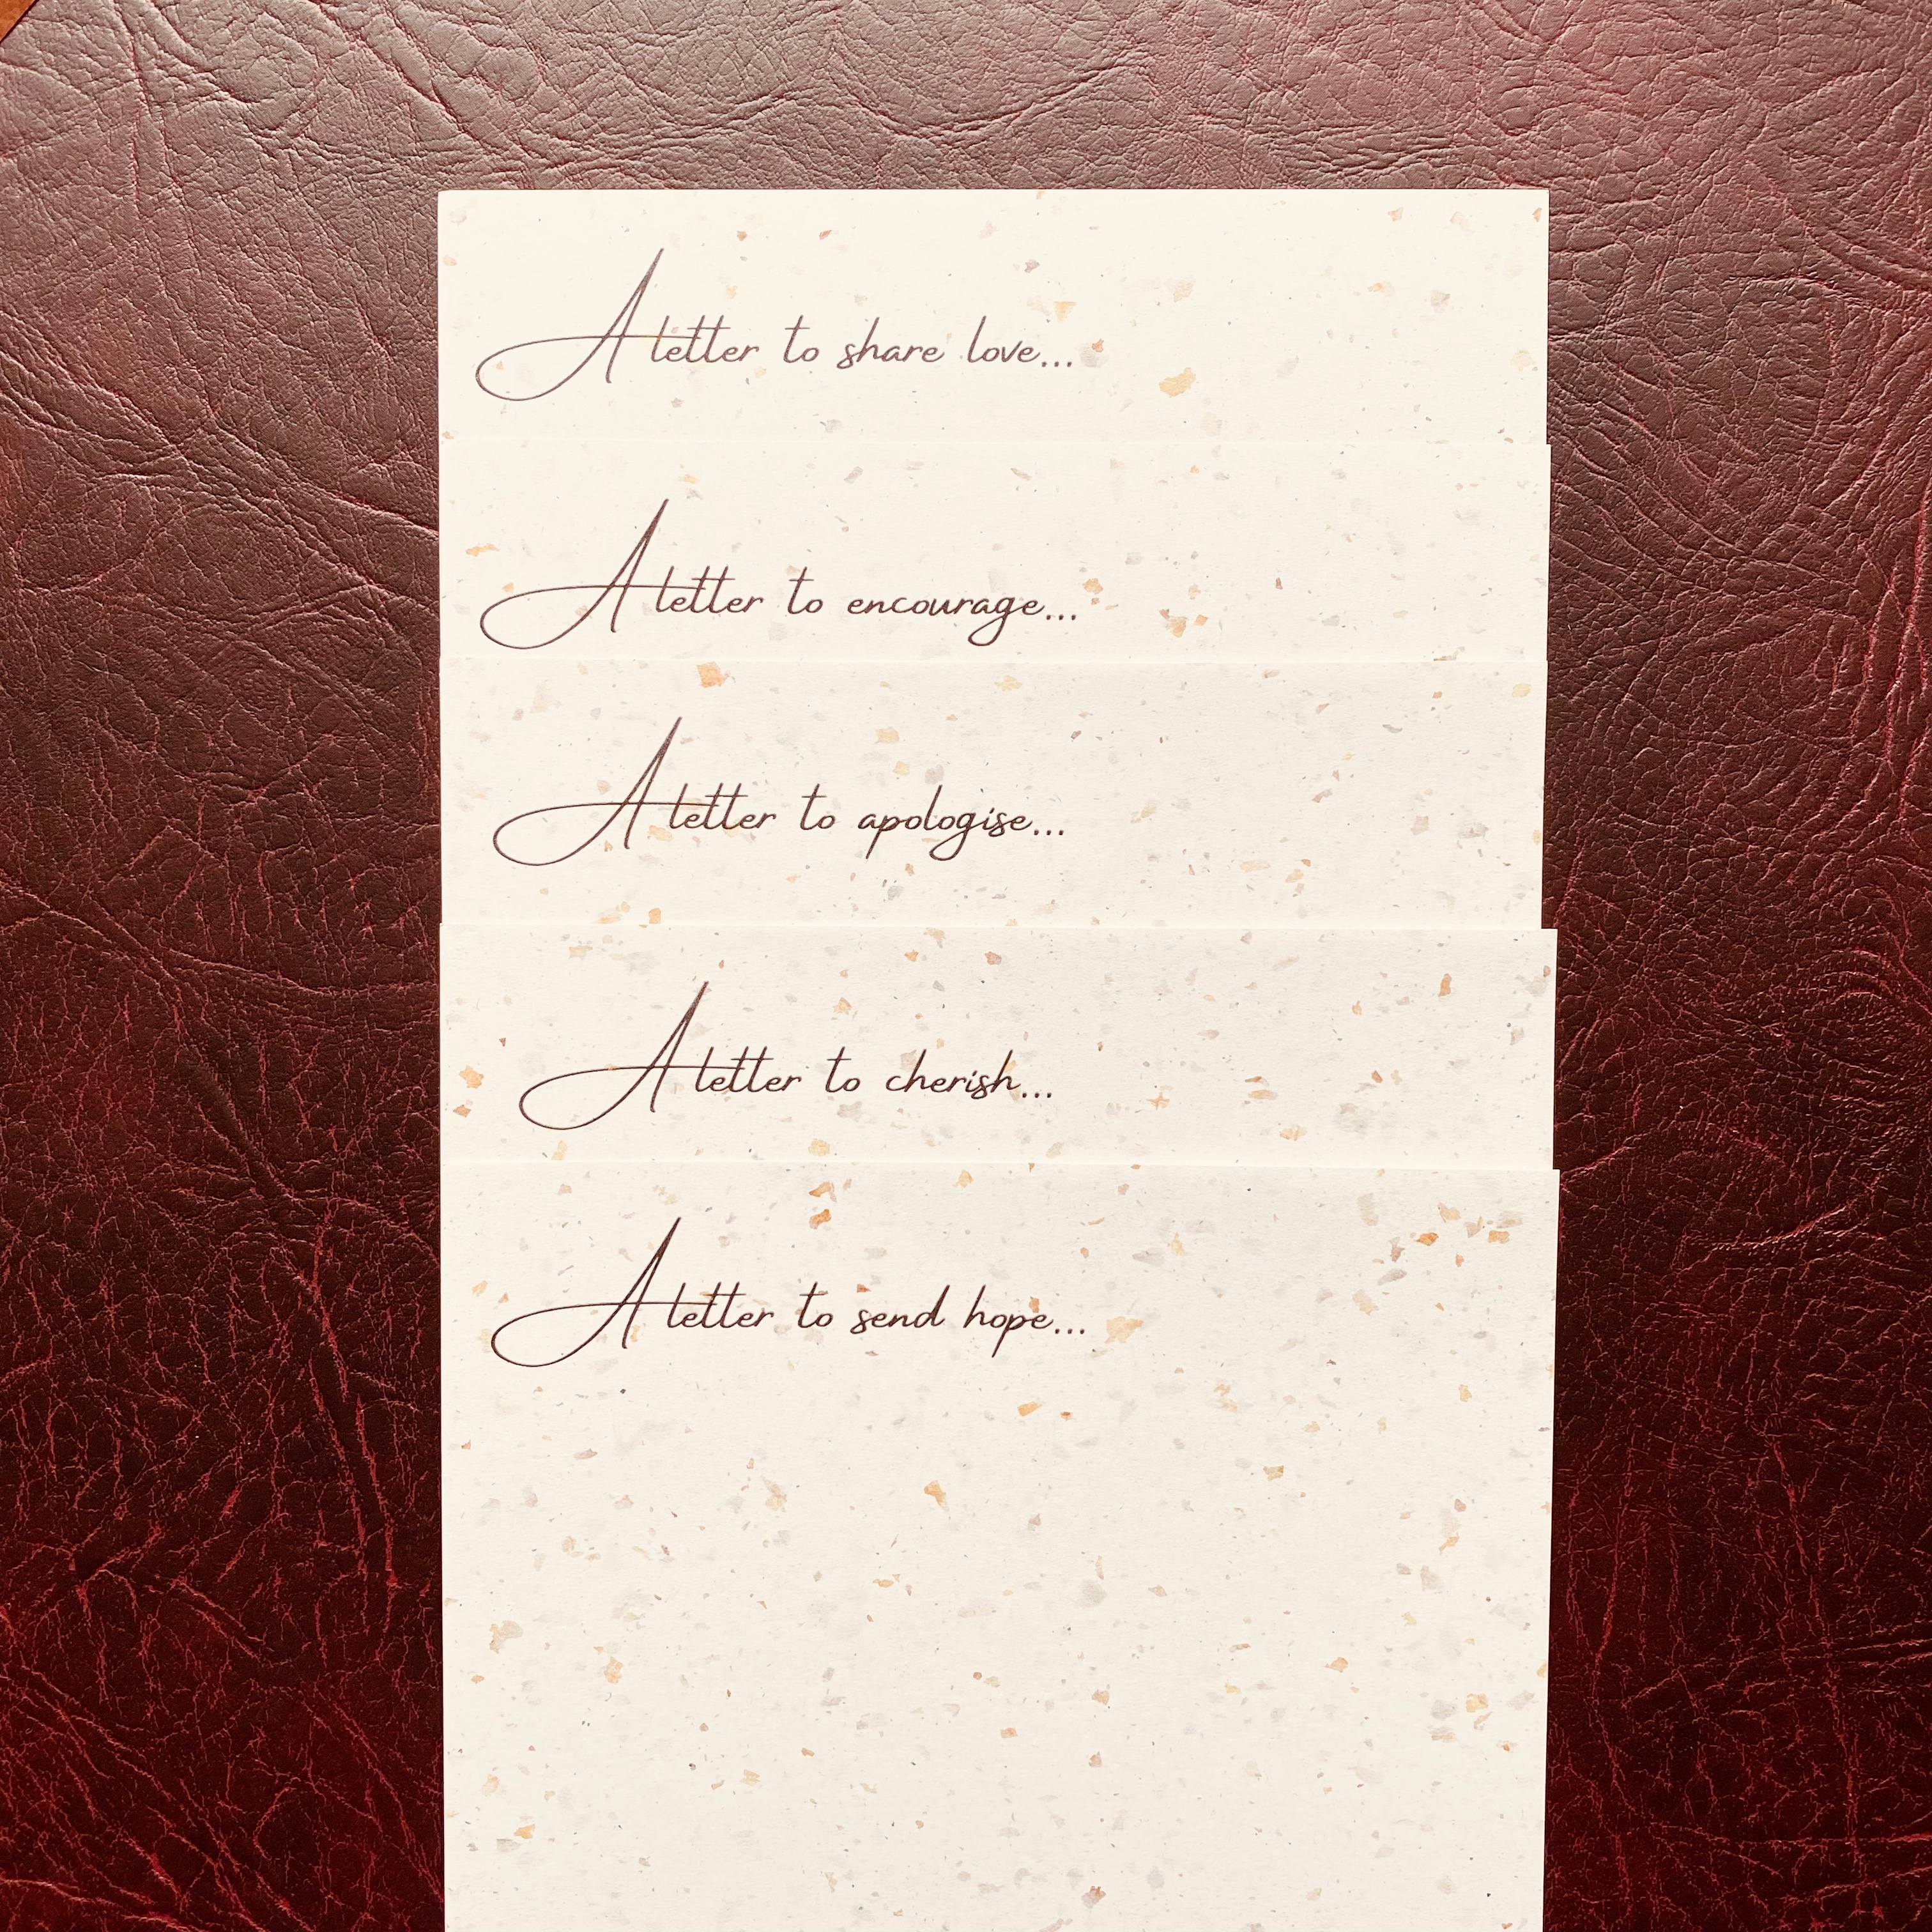 A letter to share love...
A letter to encourage...
A letter to apologise...
A letter to cherish...
A letter to send hope...